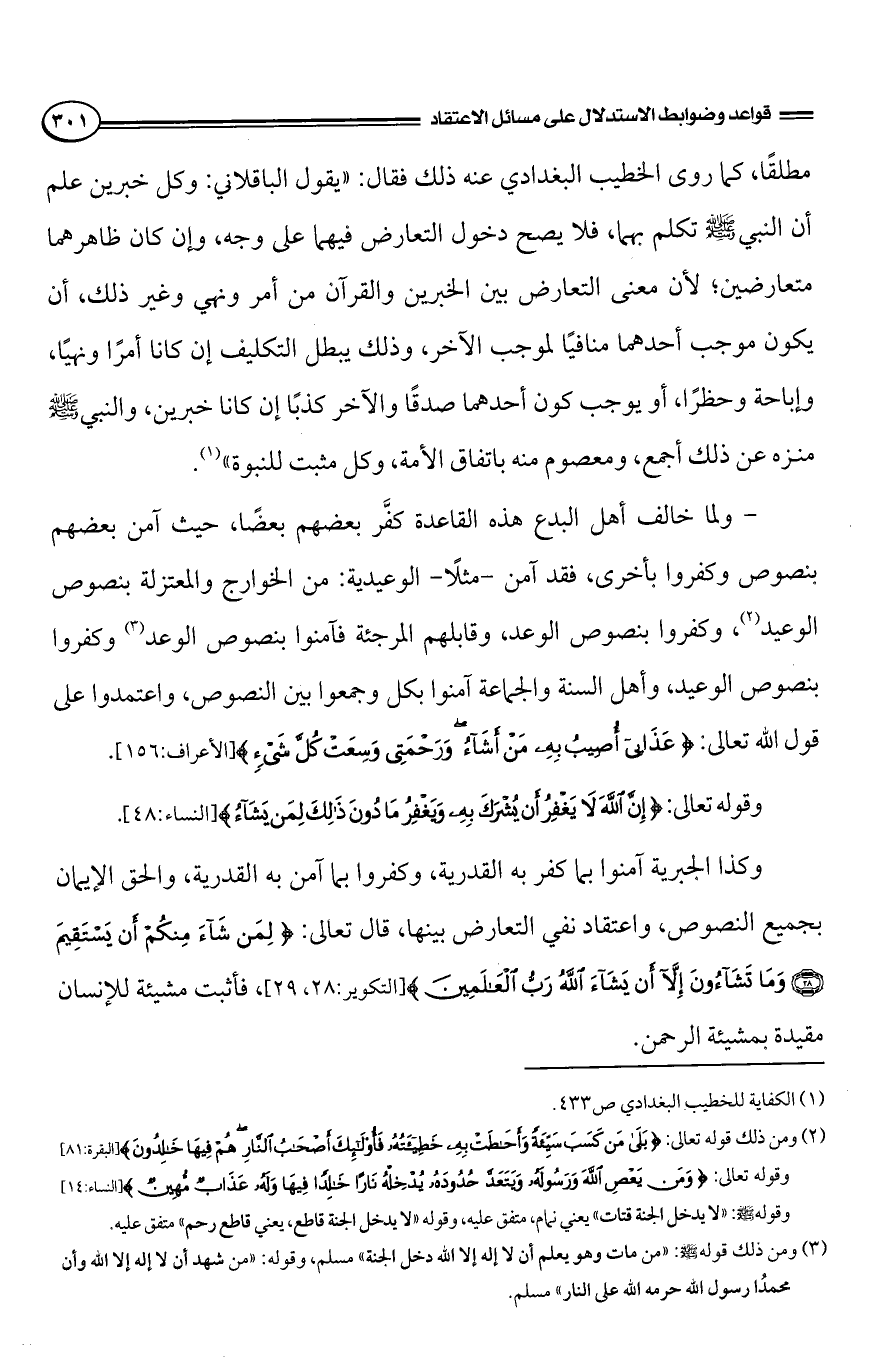 قواعد وضوابط الاستدلال على مسائل الاعتقاد ٣٠١
مطلقًا، كما روى الخطيب البغدادي عنه ذلك فقال: «يقول الباقلاني: وكل خبرين علم
أن النبي ﷺ تكلم بهما، فلا يصح دخول التعارض فيهما على وجه، وإن كان ظاهرهما
متعارضين؛ لأن معنى التعارض بين الخبرين والقرآن من أمر ونهي وغير ذلك، أن
يكون موجب أحدهما منافيًا لموجب الآخر، وذلك يبطل التكليف إن كانا أمرًا ونهيًا،
وإباحة وحظرًا، أو يوجب كون أحدهما صدقًا والآخر كذبًا إن كانا خبرين، والنبي ﷺ
منزه عن ذلك أجمع، ومعصوم منه باتفاق الأمة، وكل مثبت للنبوة»(١).
- ولما خالف أهل البدع هذه القاعدة كفَّر بعضهم بعضًا، حيث آمن بعضهم
بنصوص وكفروا بأخرى، فقد آمن -مثلًا- الوعيدية: من الخوارج والمعتزلة بنصوص
الوعيد(٢)، وكفروا بنصوص الوعد، وقابلهم المرجئة فآمنوا بنصوص الوعد(٣) وكفروا
بنصوص الوعيد، وأهل السنة والجماعة آمنوا بكل وجمعوا بين النصوص، واعتمدوا على
قول الله تعالى: ﴿ عَذَابِىٓ أُصِيبُ بِهِۦ مَنْ أَشَآءُ ۖ وَرَحْمَتِى وَسِعَتْ كُلَّ شَىْءٍ ﴾[الأعراف:١٥٦].
وقوله تعالى: ﴿ إِنَّ ٱللَّهَ لَا يَغْفِرُ أَن يُشْرَكَ بِهِۦ وَيَغْفِرُ مَا دُونَ ذَٰلِكَ لِمَن يَشَآءُ ﴾[النساء:٤٨].
وكذا الجبرية آمنوا بما كفر به القدرية، وكفروا بما آمن به القدرية، والحق الإيمان
بجميع النصوص، واعتقاد نفي التعارض بينها، قال تعالى: ﴿ لِمَن شَآءَ مِنكُمْ أَن يَسْتَقِيمَ
﴿٢٨﴾ وَمَا تَشَآءُونَ إِلَّآ أَن يَشَآءَ ٱللَّهُ رَبُّ ٱلْعَٰلَمِينَ ﴾[التكوير:٢٨، ٢٩]، فأثبت مشيئة للإنسان
مقيدة بمشيئة الرحمن.
(١) الكفاية للخطيب البغدادي ص٤٣٣.
(٢) ومن ذلك قوله تعالى: ﴿ بَلَىٰ مَن كَسَبَ سَيِّئَةً وَأَحَٰطَتْ بِهِۦ خَطِيٓـَٔتُهُۥ فَأُو۟لَٰٓئِكَ أَصْحَٰبُ ٱلنَّارِ ۖ هُمْ فِيهَا خَٰلِدُونَ ﴾[البقرة:٨١]
وقوله تعالى: ﴿ وَمَن يَعْصِ ٱللَّهَ وَرَسُولَهُۥ وَيَتَعَدَّ حُدُودَهُۥ يُدْخِلْهُ نَارًا خَٰلِدًا فِيهَا وَلَهُۥ عَذَابٌ مُّهِينٌ ﴾[النساء:١٤]
وقوله ﷺ: «لا يدخل الجنة قتات» يعني نمام، متفق عليه، وقوله «لا يدخل الجنة قاطع، يعني قاطع رحم» متفق عليه.
(٣) ومن ذلك قوله ﷺ: «من مات وهو يعلم أن لا إله إلا الله دخل الجنة» مسلم، وقوله: «من شهد أن لا إله إلا الله وأن
محمدًا رسول الله حرمه الله على النار» مسلم.